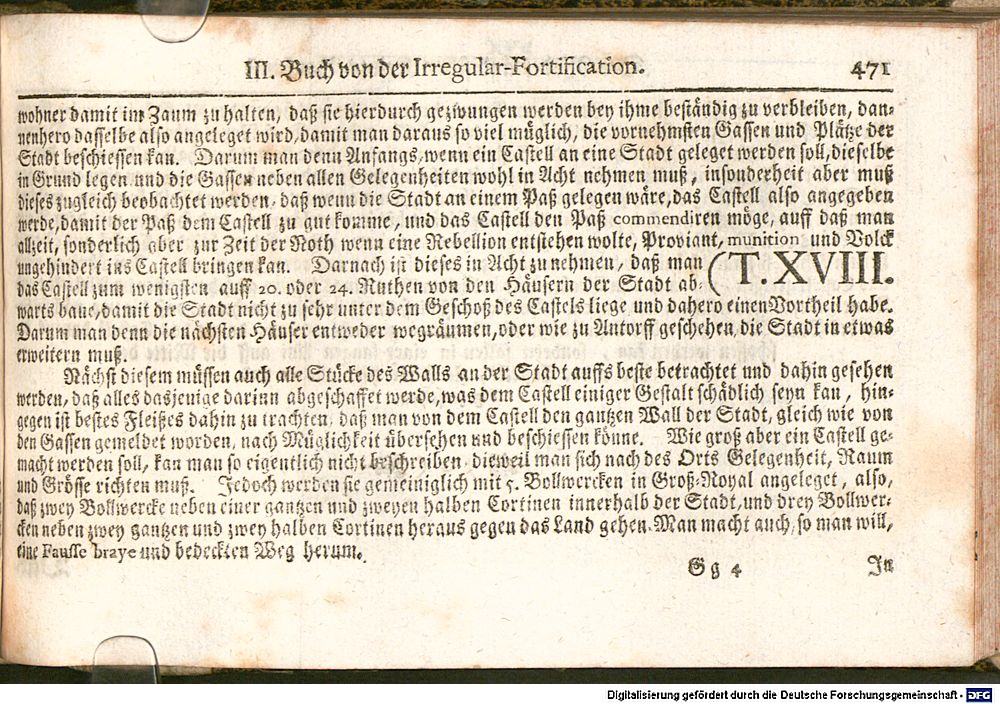 III. Buch von der Irregular-Fortification. 471
wohner damit im Zaum zu halten, daß sie hierdurch gezwungen werden bey ihme beständig zu verbleiben, dan-
nenhero dasselbe also angeleget wird, damit man daraus so viel müglich, die vornehmsten Gassen und Plätze der
Stadt beschiessen kan. Darum man denn Anfangs, wenn ein Castell an eine Stadt geleget werden soll, dieselbe
in Grund legen und die Gassen neben allen Gelegenheiten wohl in Acht nehmen muß, insonderheit aber muß
dieses zugleich beobachtet werden, daß wenn die Stadt an einem Paß gelegen wäre, das Castell also angegeben
werde, damit der Paß dem Castell zu gut komme, und das Castell den Paß commendiren möge, auff daß man
allzeit, sonderlich aber zur Zeit der Noth wenn eine Rebellion entstehen wolte, Proviant, munition und Volck
ungehindert ins Castell bringen kan. Darnach ist dieses in Acht zu nehmen, daß man (T. XVIII.
das Castell zum wenigsten auff 20. oder 24. Ruthen von den Häusern der Stadt ab-
warts baue, damit die Stadt nicht zu sehr unter dem Geschoß des Castels liege und dahero einen Vortheil habe.
Darum man denn die nächsten Häuser entweder wegräumen, oder wie zu Antorff geschehen, die Stadt in etwas
erweitern muß.
Nächst diesem müssen auch alle Stücke des Walls an der Stadt auffs beste betrachtet und dahin gesehen
werden, daß alles dasjenige darinn abgeschaffet werde, was dem Castell einiger Gestalt schädlich seyn kan, hin-
gegen ist bestes Fleißes dahin zu trachten, daß man von dem Castell den gantzen Wall der Stadt, gleich wie von
den Gassen gemeldet worden, nach Müglichkeit übersehen und beschiessen könne. Wie groß aber ein Castell ge-
macht werden soll, kan man so eigentlich nicht beschreiben, dieweil man sich nach des Orts Gelegenheit, Raum
und Grösse richten muß. Jedoch werden sie gemeiniglich mit 5. Bollwercken in Groß-Royal angeleget, also,
daß zwey Bollwercke neben einer gantzen und zweyen halben Cortinen innerhalb der Stadt, und drey Bollwer-
cken neben zwey gantzen und zwey halben Cortinen heraus gegen das Land gehen. Man macht auch, so man will,
eine Fausse braye und bedeckten Weg herum.
Gg 4 In
Digitalisierung gefördert durch die Deutsche Forschungsgemeinschaft - DFG